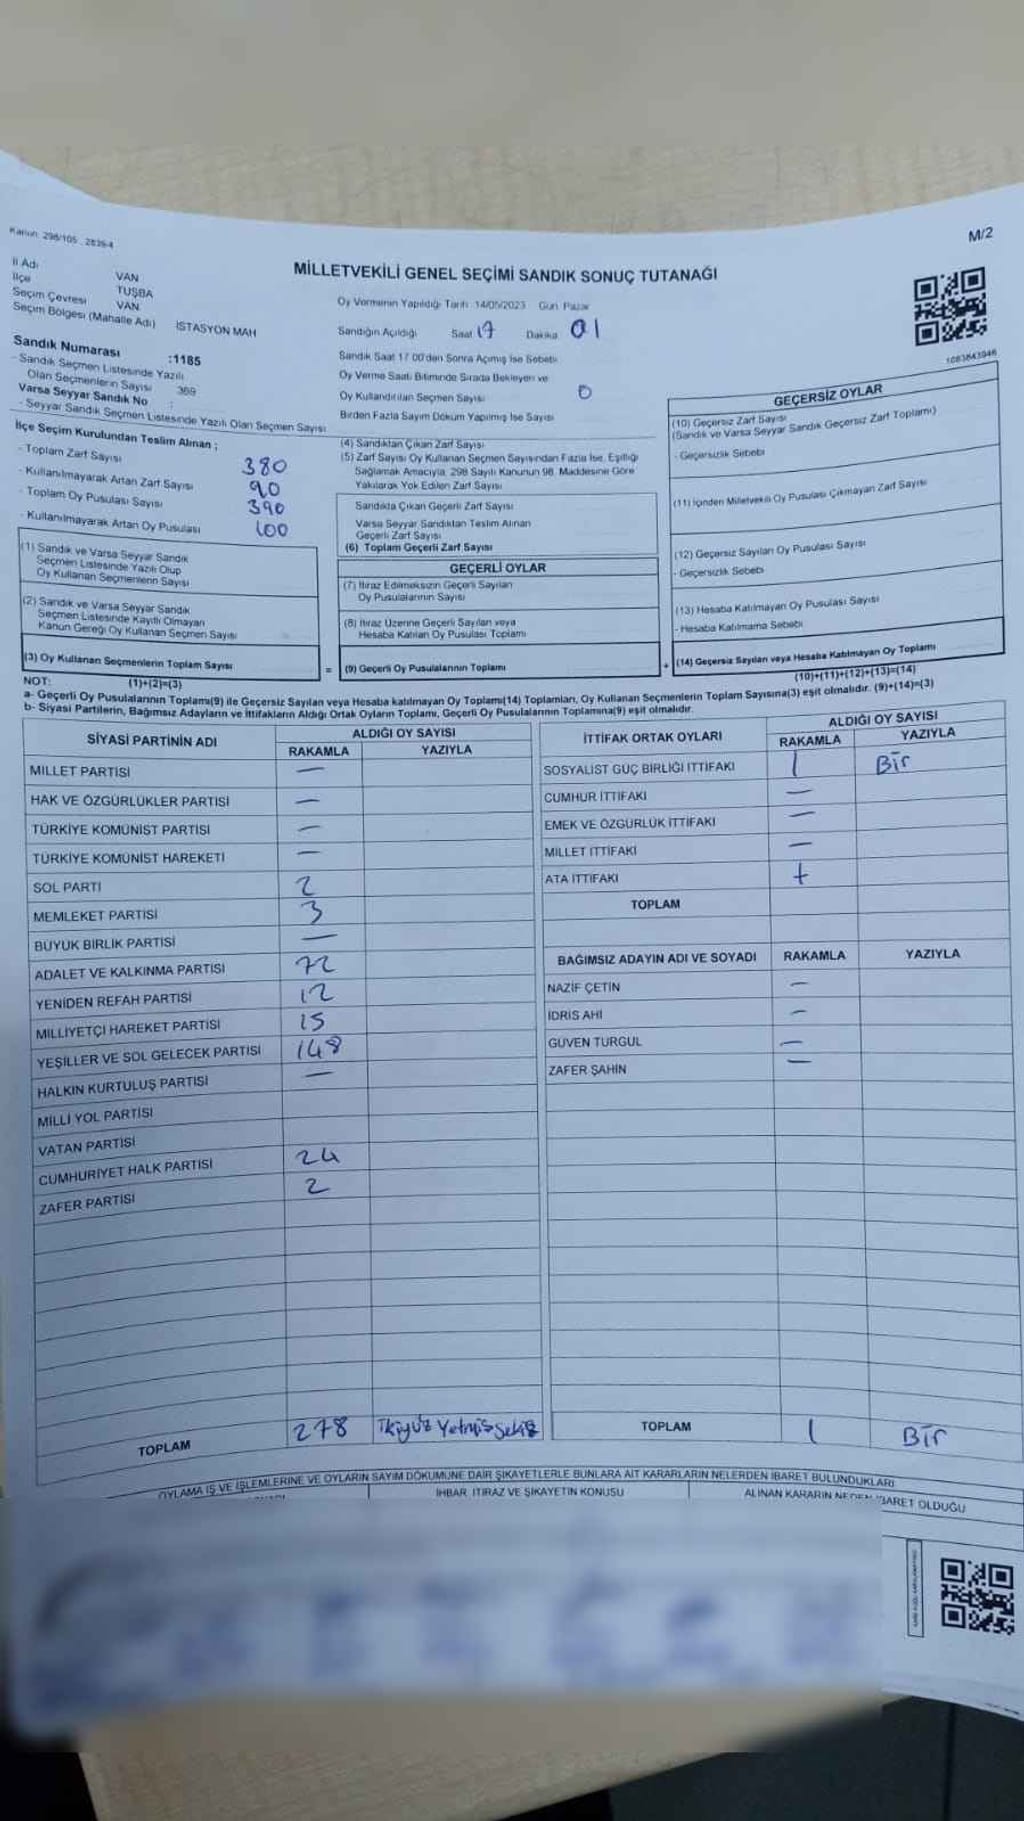 Kanun: 298/105, 2839-4
M/2
MİLLETVEKİLİ GENEL SEÇİMİ SANDIK SONUÇ TUTANAĞI
İl Adı VAN
İlçe TUŞBA
Seçim Çevresi VAN
Seçim Bölgesi (Mahalle Adı) İSTASYON MAH
Sandık Numarası :1185
- Sandık Seçmen Listesinde Yazılı
Olan Seçmenlerin Sayısı 369
Varsa Seyyar Sandık No :
- Seyyar Sandık Seçmen Listesinde Yazılı Olan Seçmen Sayısı
Oy Vermenin Yapıldığı Tarih: 14/05/2023 Gün: Pazar
Sandığın Açıldığı Saat 17 Dakika 01
Sandık Saat 17.00'den Sonra Açılmış İse Sebebi
Oy Verme Saati Bitiminde Sırada Bekleyen ve
Oy Kullandırılan Seçmen Sayısı 0
Birden Fazla Sayım Döküm Yapılmış İse Sayısı
1083843946
İlçe Seçim Kurulundan Teslim Alınan ;
- Toplam Zarf Sayısı 380
- Kullanılmayarak Artan Zarf Sayısı 90
- Toplam Oy Pusulası Sayısı 390
- Kullanılmayarak Artan Oy Pusulası 100
(1) Sandık ve Varsa Seyyar Sandık
Seçmen Listesinde Yazılı Olup
Oy Kullanan Seçmenlerin Sayısı
(2) Sandık ve Varsa Seyyar Sandık
Seçmen Listesinde Kayıtlı Olmayan
Kanun Gereği Oy Kullanan Seçmen Sayısı
(3) Oy Kullanan Seçmenlerin Toplam Sayısı
(4) Sandıktan Çıkan Zarf Sayısı
(5) Zarf Sayısı Oy Kullanan Seçmen Sayısından Fazla İse, Eşitliği
Sağlamak Amacıyla, 298 Sayılı Kanunun 98. Maddesine Göre
Yakılarak Yok Edilen Zarf Sayısı
Sandıkta Çıkan Geçerli Zarf Sayısı
Varsa Seyyar Sandıktan Teslim Alınan
Geçerli Zarf Sayısı
(6) Toplam Geçerli Zarf Sayısı
GEÇERLİ OYLAR
(7) İtiraz Edilmeksizin Geçerli Sayılan
Oy Pusulalarının Sayısı
(8) İtiraz Üzerine Geçerli Sayılan veya
Hesaba Katılan Oy Pusulası Toplamı
= (9) Geçerli Oy Pusulalarının Toplamı
GEÇERSİZ OYLAR
(10) Geçersiz Zarf Sayısı
(Sandık ve Varsa Seyyar Sandık Geçersiz Zarf Toplamı)
- Geçersizlik Sebebi
(11) İçinden Milletvekili Oy Pusulası Çıkmayan Zarf Sayısı
(12) Geçersiz Sayılan Oy Pusulası Sayısı
- Geçersizlik Sebebi
(13) Hesaba Katılmayan Oy Pusulası Sayısı
- Hesaba Katılmama Sebebi
+ (14) Geçersiz Sayılan veya Hesaba Katılmayan Oy Toplamı
NOT: (1)+(2)=(3)
(10)+(11)+(12)+(13)=(14)
a- Geçerli Oy Pusulalarının Toplamı(9) ile Geçersiz Sayılan veya Hesaba katılmayan Oy Toplamı(14) Toplamları, Oy Kullanan Seçmenlerin Toplam Sayısına(3) eşit olmalıdır. (9)+(14)=(3)
b- Siyasi Partilerin, Bağımsız Adayların ve İttifakların Aldığı Ortak Oyların Toplamı, Geçerli Oy Pusulalarının Toplamına(9) eşit olmalıdır.
SİYASİ PARTİNİN ADI ALDIĞI OY SAYISI
RAKAMLA YAZIYLA
MİLLET PARTİSİ —
HAK VE ÖZGÜRLÜKLER PARTİSİ —
TÜRKİYE KOMÜNİST PARTİSİ —
TÜRKİYE KOMÜNİST HAREKETİ —
SOL PARTİ 2
MEMLEKET PARTİSİ 3
BÜYÜK BİRLİK PARTİSİ —
ADALET VE KALKINMA PARTİSİ 72
YENİDEN REFAH PARTİSİ 12
MİLLİYETÇİ HAREKET PARTİSİ 15
YEŞİLLER VE SOL GELECEK PARTİSİ 148
HALKIN KURTULUŞ PARTİSİ —
MİLLİ YOL PARTİSİ
VATAN PARTİSİ
CUMHURİYET HALK PARTİSİ 24
ZAFER PARTİSİ 2
TOPLAM 278 İkiyüz Yetmiş Sekiz
İTTİFAK ORTAK OYLARI ALDIĞI OY SAYISI
RAKAMLA YAZIYLA
SOSYALİST GÜÇ BİRLİĞİ İTTİFAKI 1 Bir
CUMHUR İTTİFAKI —
EMEK VE ÖZGÜRLÜK İTTİFAKI —
MİLLET İTTİFAKI —
ATA İTTİFAKI +
TOPLAM
BAĞIMSIZ ADAYIN ADI VE SOYADI RAKAMLA YAZIYLA
NAZİF ÇETİN —
İDRİS AHİ —
GÜVEN TURGUL —
ZAFER ŞAHİN —
TOPLAM 1 Bir
OYLAMA İŞ VE İŞLEMLERİNE VE OYLARIN SAYIM DÖKÜMÜNE DAİR ŞİKAYETLERLE BUNLARA AİT KARARLARIN NELERDEN İBARET BULUNDUKLARI
İHBAR, İTİRAZ VE ŞİKAYETİN KONUSU
ALINAN KARARIN NEDEN İBARET OLDUĞU